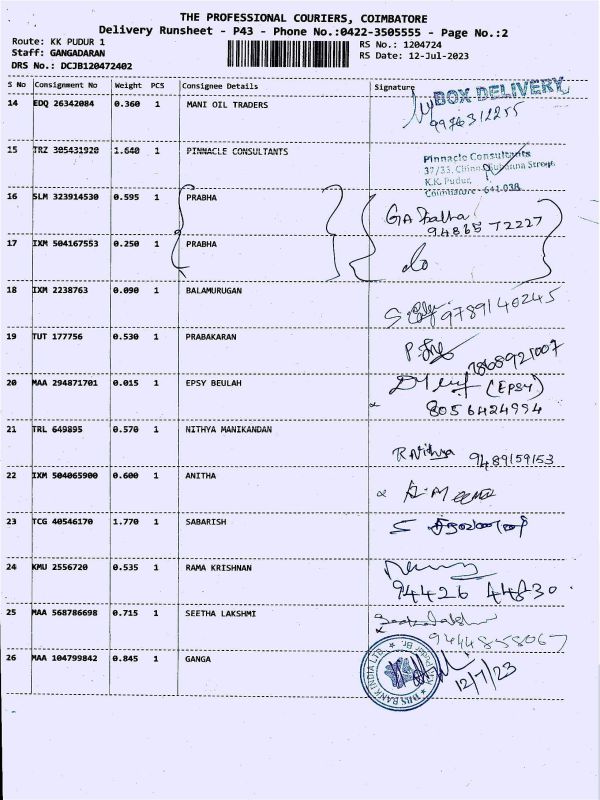 THE PROFESSIONAL COURIERS, COIMBATORE
Delivery Runsheet - P43 - Phone No.:0422-3505555 - Page No.:2
Route: KK PUDUR 1 RS No.: 1204724
Staff: GANGADARAN RS Date: 12-Jul-2023
DRS No.: DCJB120472402
S No Consignment No Weight PCS Consignee Details Signature
14 EDQ 26342084 0.360 1 MANI OIL TRADERS BOX DELIVERY
15 TRZ 305431920 1.640 1 PINNACLE CONSULTANTS
Pinnacle Consultants
37/33, Street,
K.K. Pudur,
Coimbatore - 641 038
16 SLM 323914530 0.595 1 PRABHA
94865 72227
17 IXM 504167553 0.250 1 PRABHA do
18 IXM 2238763 0.090 1 BALAMURUGAN 9789140245
19 TUT 177756 0.530 1 PRABAKARAN
7868921007
20 MAA 294871701 0.015 1 EPSY BEULAH (EPSY)
8056424994
21 TRL 649895 0.570 1 NITHYA MANIKANDAN R Nithya 9489159153
22 IXM 504065900 0.600 1 ANITHA A. Meena
23 TCG 40546170 1.770 1 SABARISH
24 KMU 2556720 0.535 1 RAMA KRISHNAN
94426 44830
25 MAA 568786698 0.715 1 SEETHA LAKSHMI
9444858067
26 MAA 104799842 0.845 1 GANGA
12/7/23